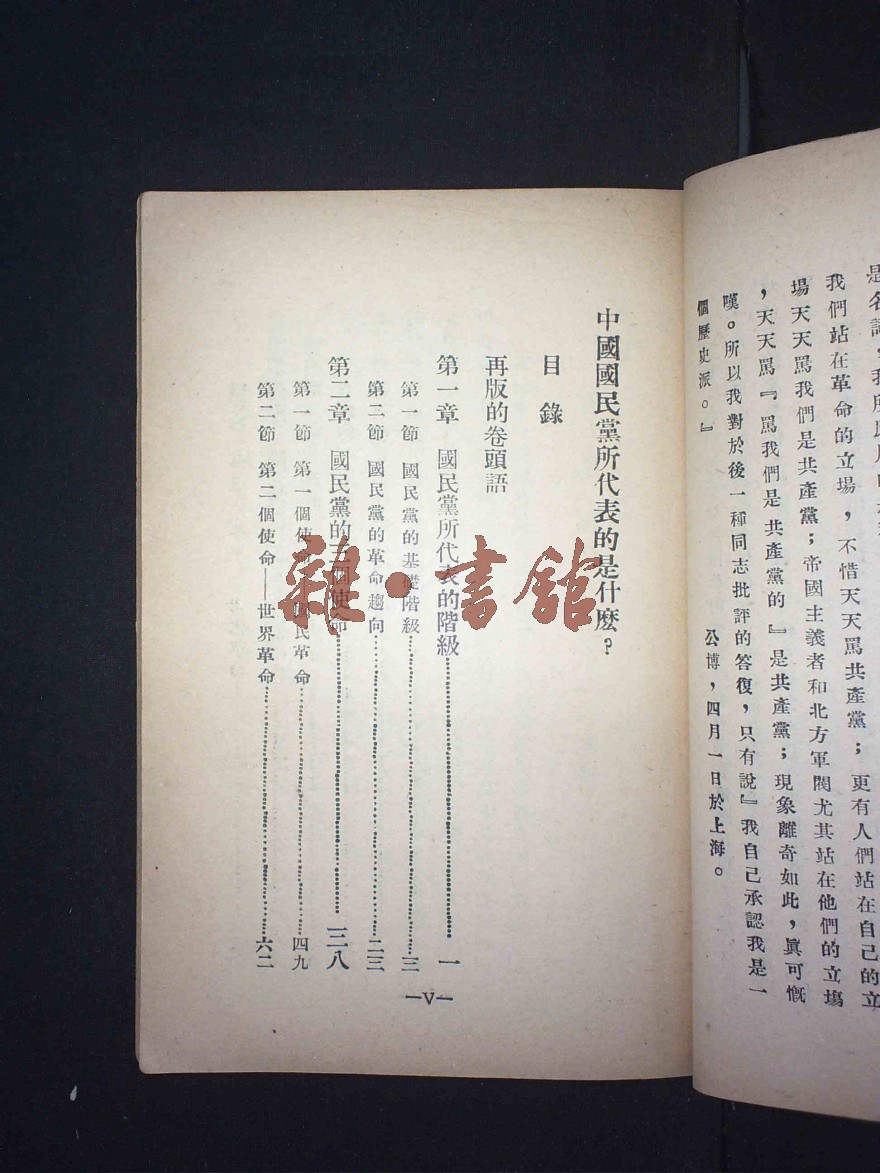 我們站在革命的立場，不惜天天罵共產黨；更有人們站在自己的立
場天天罵我們是共產黨；帝國主義者和北方軍閥尤其站在他們的立塲
，天天罵『罵我們是共產黨的』是共產黨；現象離奇如此，眞可慨
嘆。所以我對於後一種同志批評的答復，只有說』我自己承認我是一
個歷史派。』
公博，四月一日於上海。
中國國民黨所代表的是什麽？
目錄
再版的卷頭語
第一章 國民黨所代表的階級 一
第一節 國民黨的基礎階級 三
第二節 國民黨的革命趨向 二三
第二章 國民黨的三個使命 三八
第一節 第一個使 民革命 四九
第二節 第二個使命—世界革命 六二
—V—
雜·書館